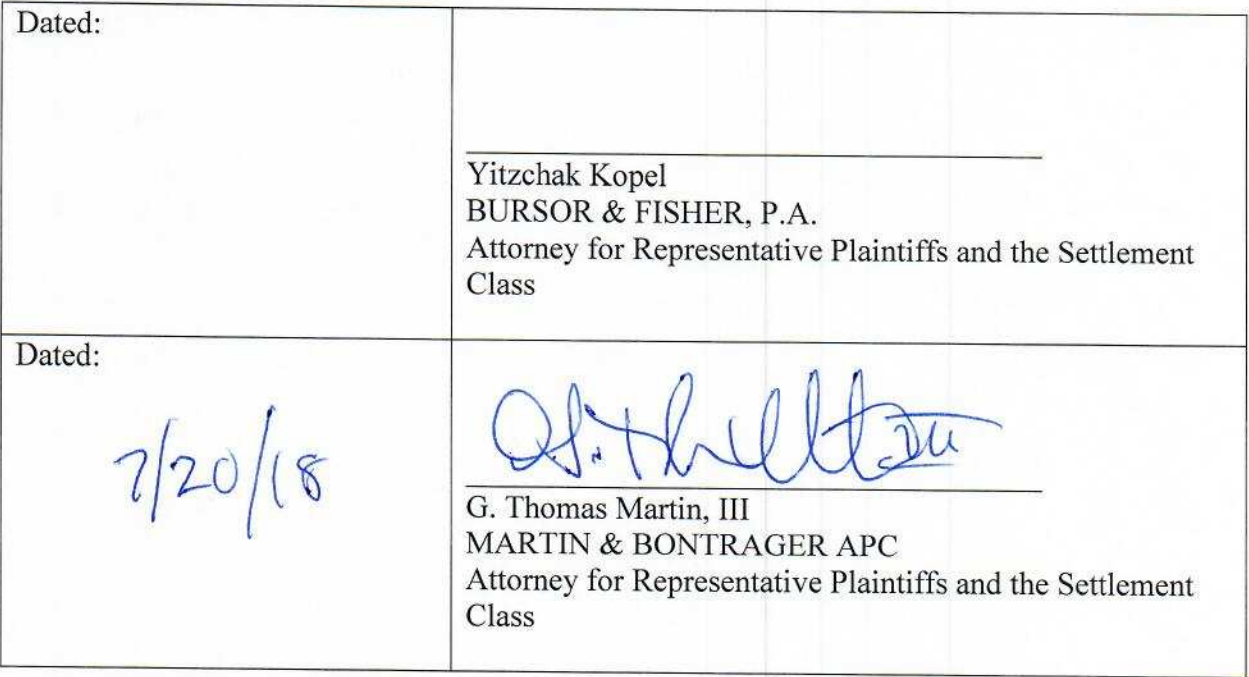 Dated:
Yitzchak Kopel
BURSOR & FISHER, P.A.
Attorney for Representative Plaintiffs and the Settlement
Class
Dated:
7/20/18
G. Thomas Martin, III
MARTIN & BONTRAGER APC
Attorney for Representative Plaintiffs and the Settlement
Class